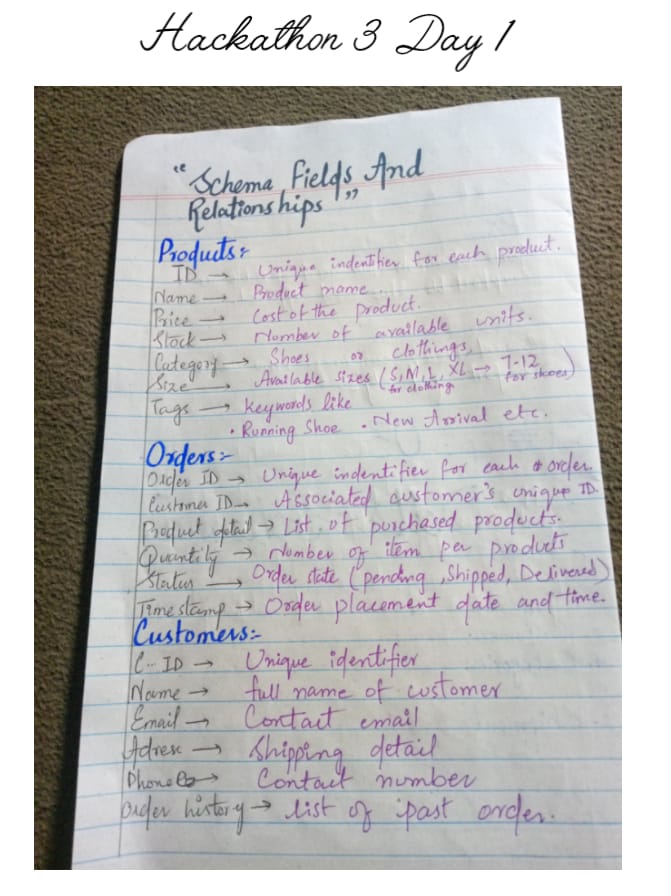 Hackathon 3 Day 1
"Schema Fields And
Relationships"
Products:-
ID → Unique indentifier for each product.
Name → Product name.
Price → Cost of the product.
Stock → Number of available units.
Category → Shoes or clothings,
Size → Available sizes (S, M, L, XL → 7-12
for clothing for shoes)
Tags → Keywords like
• Running Shoe • New Arrival etc.
Orders:-
Order ID → Unique indentifier for each order.
Customer ID → Associated customer's unique ID.
Product detail → List of purchased products.
Quantity → Number of item per products
Status → Order state (pending, Shipped, Delivered)
Time stamp → Order placement date and time.
Customers:-
C-- ID → Unique identifier
Name → full name of customer
Email → Contact email
Adress → Shipping detail
Phone → Contact number
order history → list of past order.